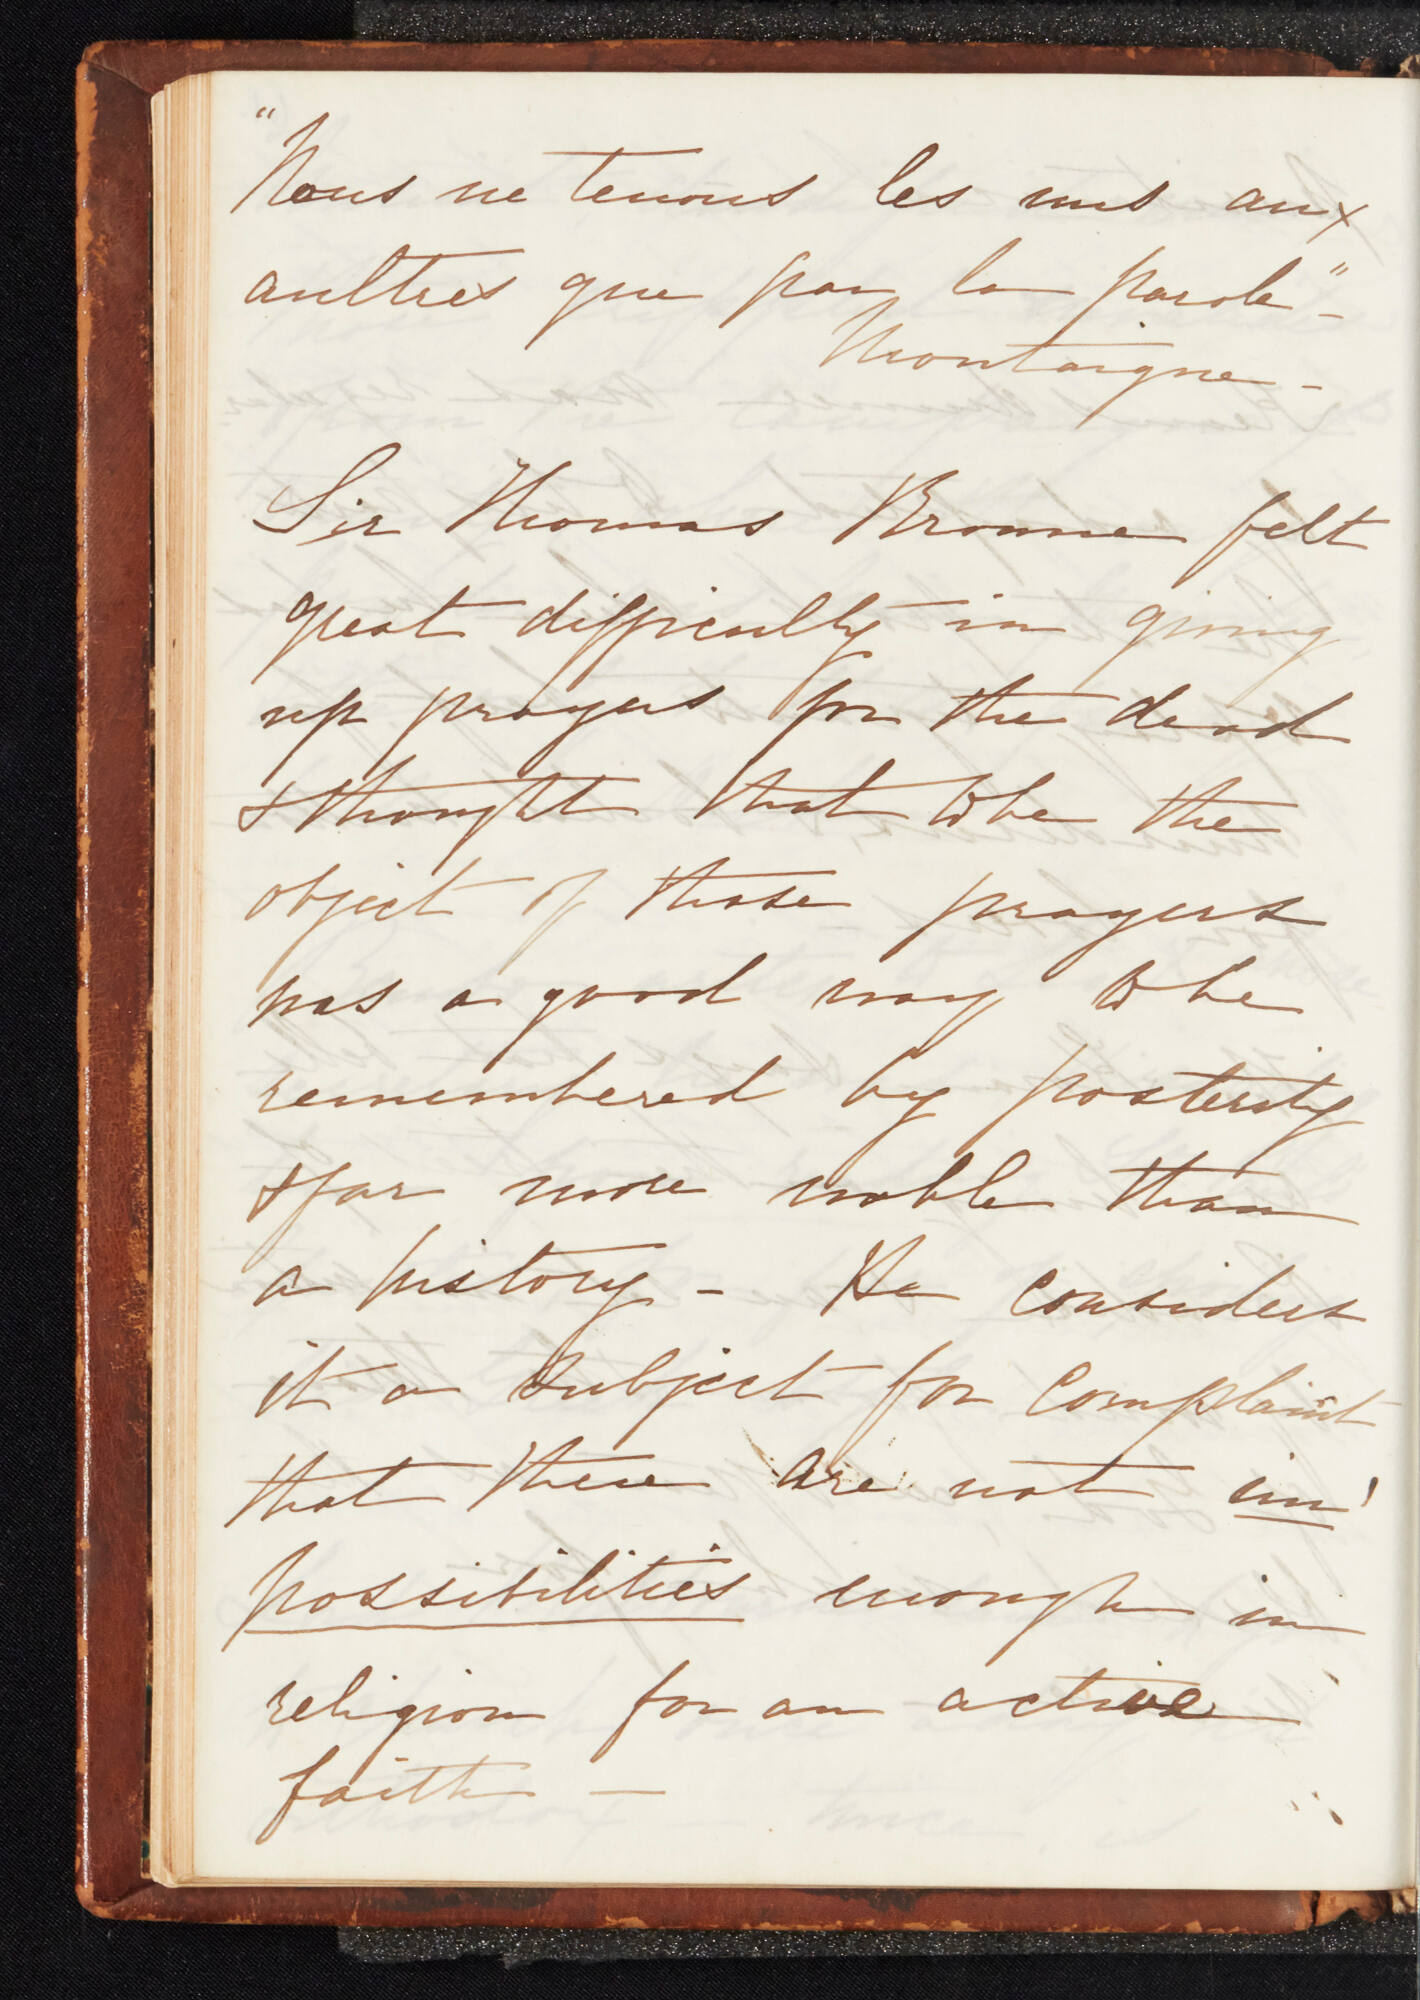 "Nous ne tenons les uns aux
aultres que par la parole" -
Montaigne -
Sir Thomas Browne felt
great difficulty in giving
up prayers for the dead
& thought that to be the
object of those prayers
was a good way to be
remembered by posterity
& far more noble than
a history - He considers
it a subject for complaint
that there are not im'
possibilities enough in
religion for an active
faith -